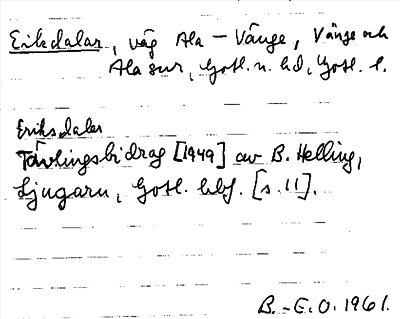 Eikdalar, väg Ala – Vänge, Vänge och
Ala snr, Gotl. n. hd, Gotl. l.
Eriksdalar
Tävlingsbidrag [1949] av B. Helling,
Ljugarn, Gotl. hbf. [s. 11].
B.-E.O. 1961.